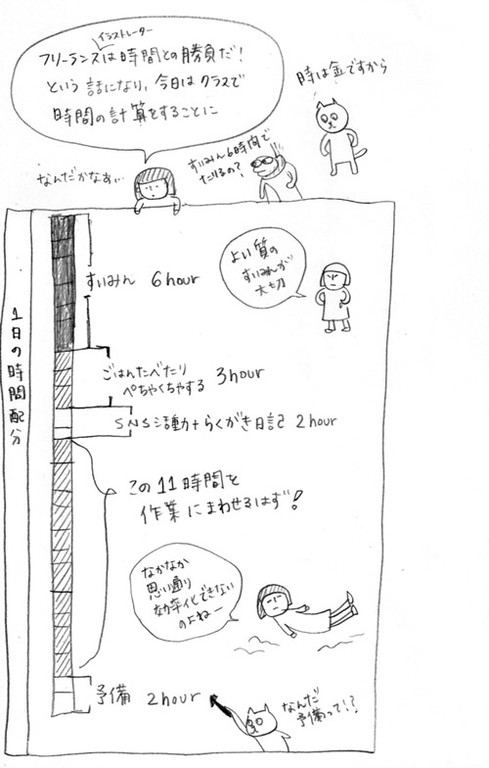 イラストレーター
フリーランスは時間との勝負だ!
という話になり、今日はクラスで
時間の計算をすることに
時は金ですから
なんだかなぁ…
すいみん6時間で
たりるの?
1日の時間配分
すいみん 6hour
よい質の
すいみんが
大切
ごはんたべたり
ぺちゃくちゃする 3hour
SNS活動+らくがき日記 2hour
この11時間を
作業にまわせるはず!
なかなか
思い通り
効率化できない
のよねー
予備 2hour
なんだ
予備って!?